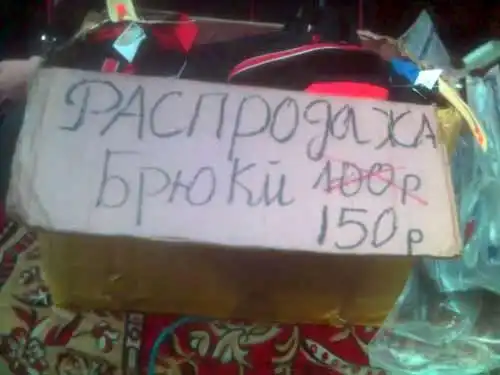 РАСПРОДАЖА
БРЮКИ 100р
150р